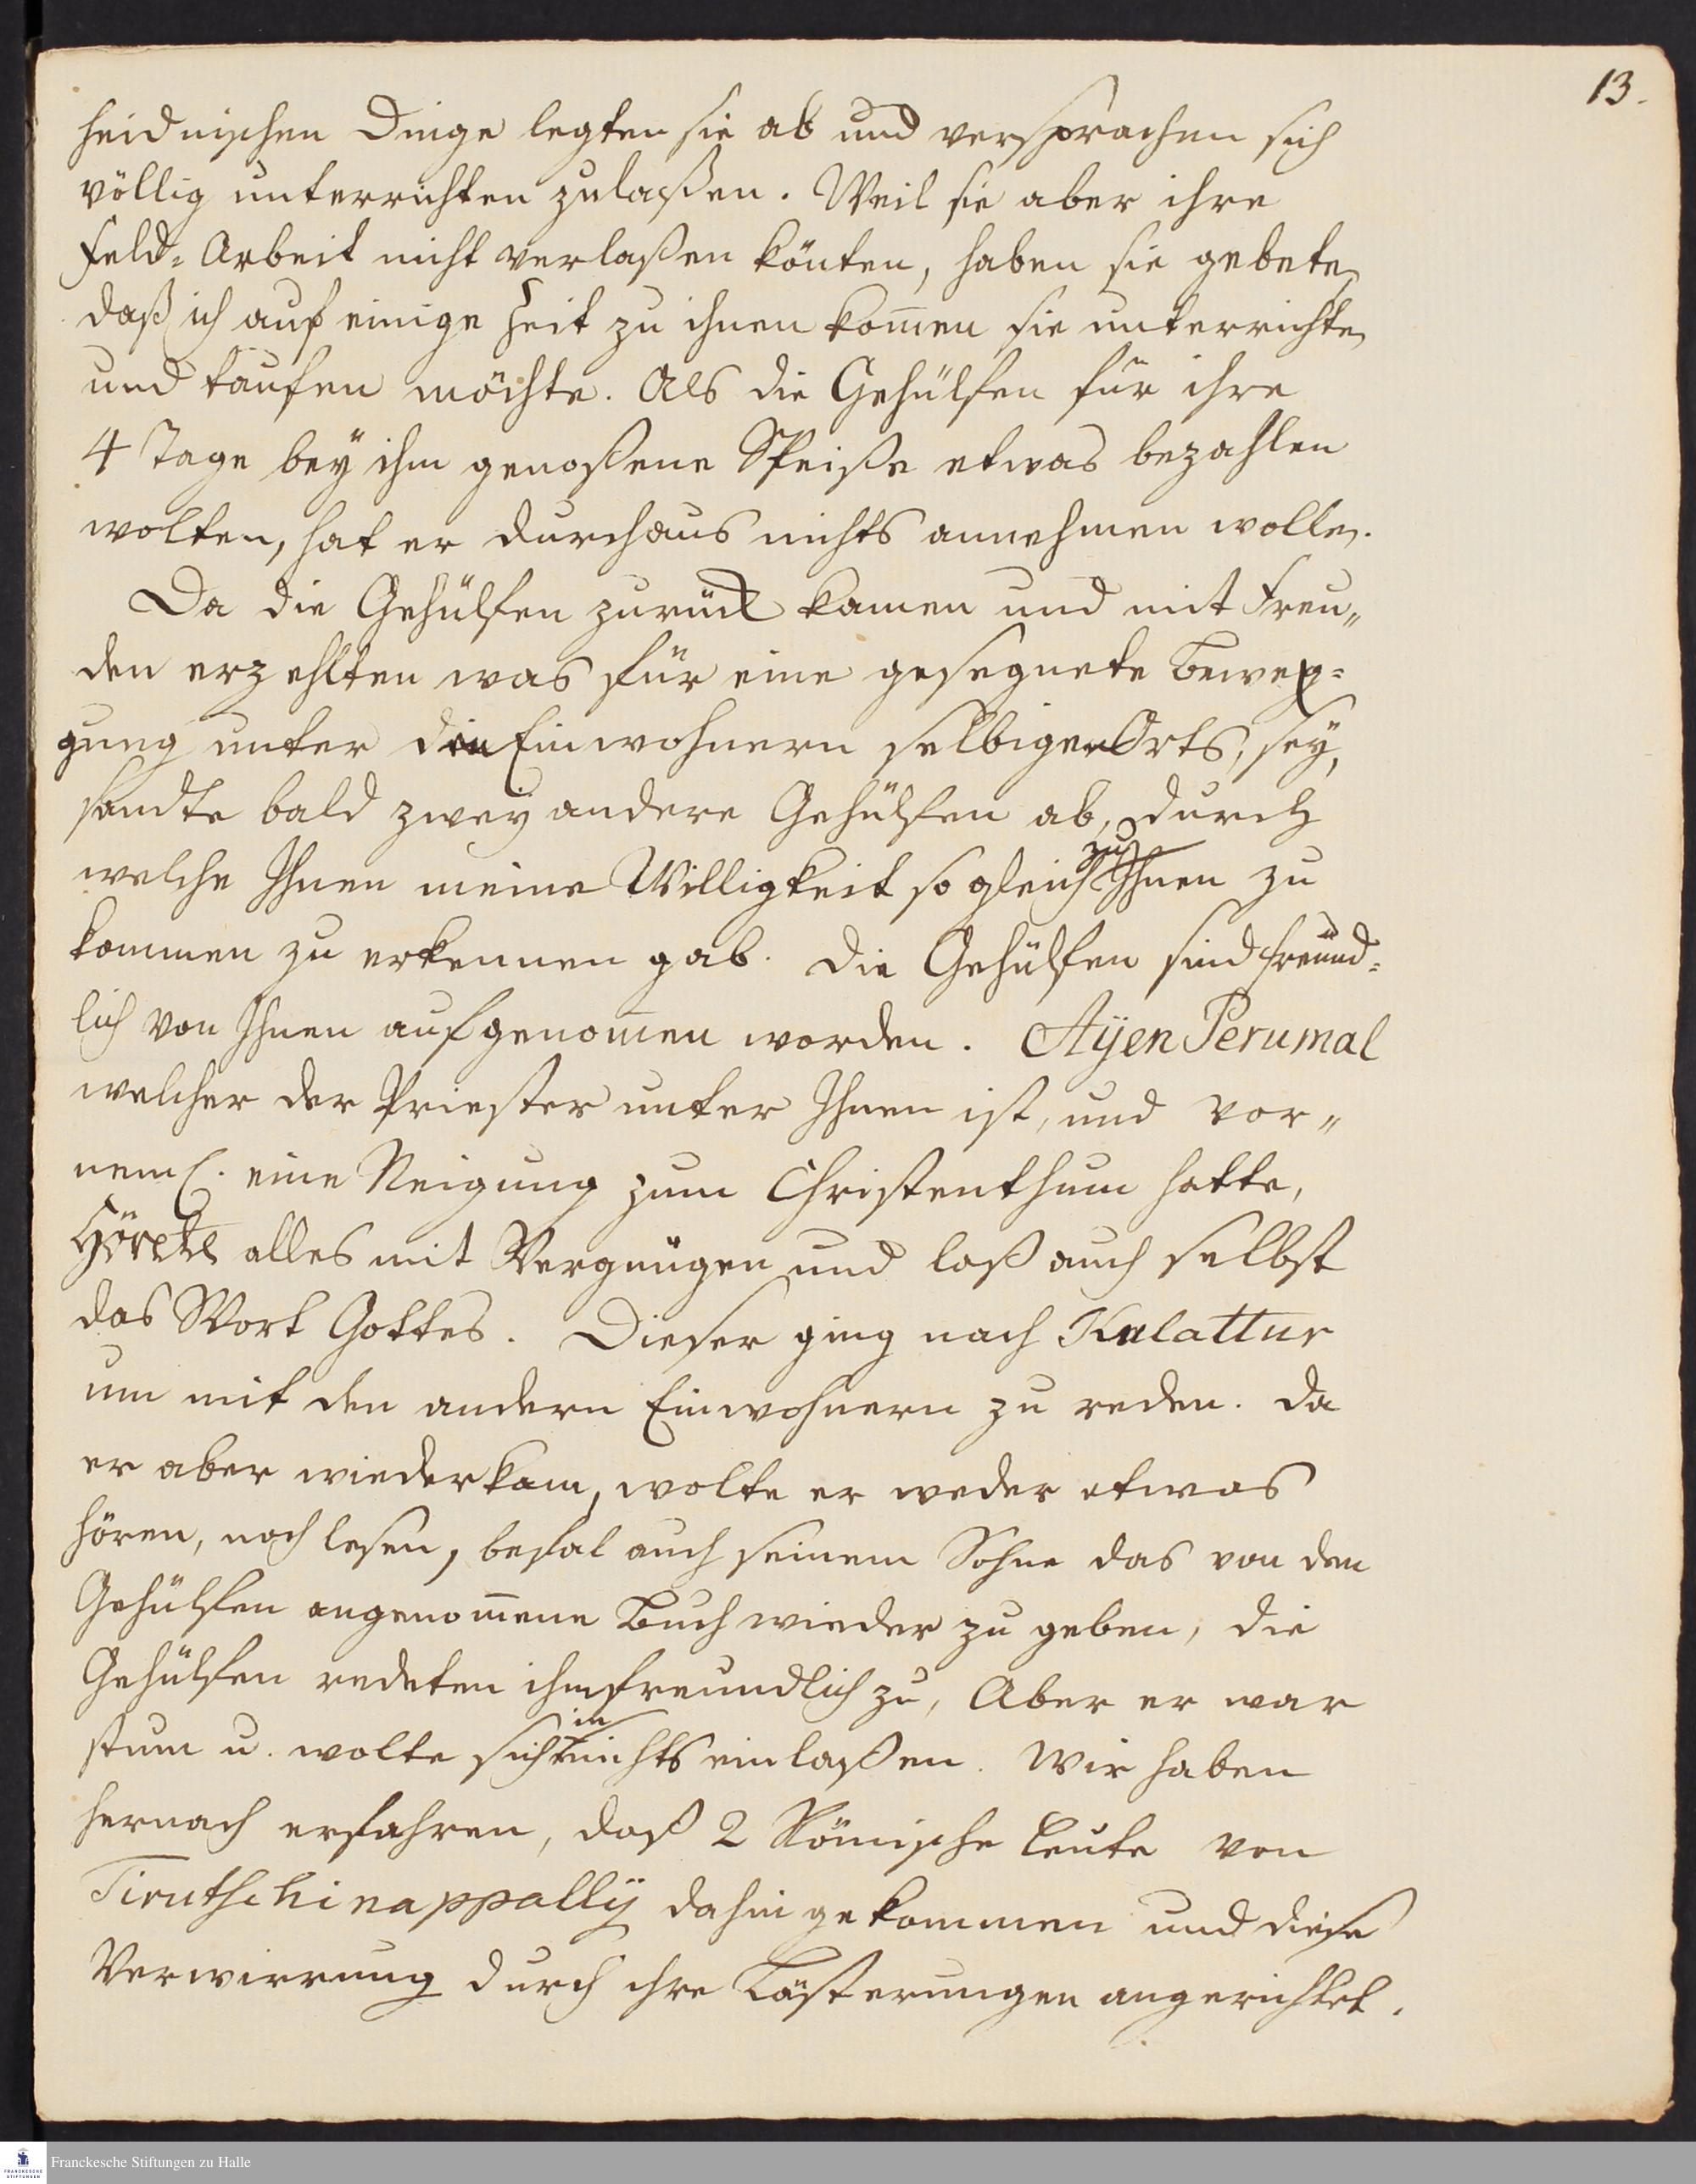 13.
heidnischen Dinge legten sie ab und versprachen sich
völlig unterrichten zulaßen. Weil sie aber ihre
Feld-Arbeit nicht verlaßen könten, haben sie gebeten
daß ich auf einige Zeit zu ihnen kom̅en sie unterrichten
und taufen möchte. Als die Gehülfen für ihre
4 Tage bey ihm genoßene Speiße etwas bezahlen
wolten, hat er durchaus nichts annehmen wollen.
Da die Gehülfen zurück kamen und mit Freu„
den erzehlten was für eine gesegnete Beweg=
gung unter den Einwohnern selbigen Orts, sey,
sandte bald zwey andere Gehülfen ab, durch
welche Ihnen meine Willigkeit so gleich zu Ihnen zu
kommen zu erkennen gab. Die Gehülfen sind freünd=
lich von Ihnen aufgenom̅en worden. Aÿen Perumal
welcher der Priester unter Ihnen ist, und vor„
neml. eine Neigung zum Christenthum hatte,
Hörete alles mit Vergnügen und laß auch selbst
das Wort Gottes. Dieser ging nach Kulattur
um mit den andern Einwohnern zu reden. Da
er aber wiederkam, wolte er weder etwas
hören, noch lesen, befal auch seinem Sohne das von den
Gehülfen angenom̅ene Buch wieder zu geben, die
Gehülfen redeten ihm freundlich zu, Aber er war
stum u. wolte sich in nichts einlaßen. Wir haben
hernach erfahren, daß 2 Römische Leute von
Tirutschinappallÿ dahin gekommen und diese
Verwirrung durch ihre Lästerungen angerichtet.
Franckesche Stiftungen zu Halle
FRANCKESCHE
STIFTUNGEN